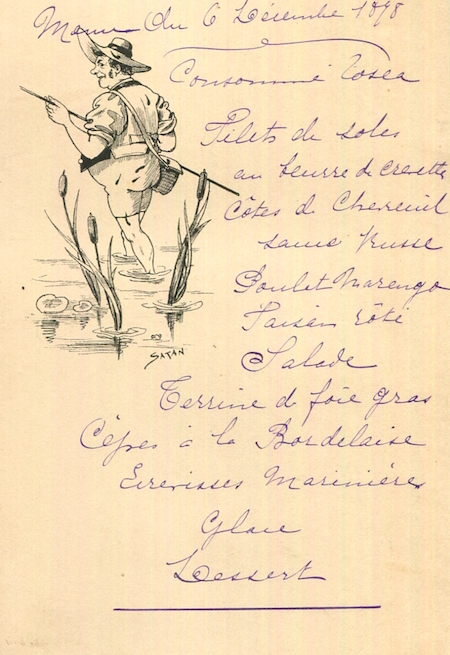 Menu du 6 Décembre 1898
Consommé Tosca
Filets de soles
au beurre de crevette
Côtes de Chevreuil
sauce Russe
Poulet Marengo
Faisan rôti
Salade
Terrine de foie gras
Cêpes à la Bordelaise
Ecrevisses Marinières
Glace
Dessert
SATAN